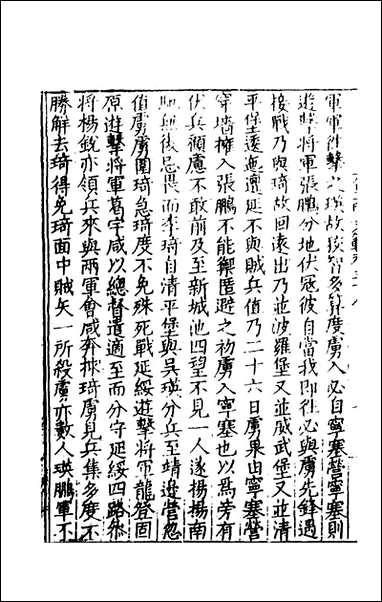 軍軍往擊之瑛故狡智多算度虜入必自寧塞營寧塞則
遊擊將軍張鵬分地伏寇彼自當我即往必與虜先鋒遇
接戰乃與琦故回遠出乃並波羅堡又並威武堡又並清
平堡逶迤邅延不與賊兵值乃二十六日虜果由寧塞營
穿墻擁入張鵬不能禦匿避之初虜入寧塞也以為旁有
伏兵顧慮不敢前及至新城池四望不見一人遂揚揚南
無後忌憚而李琦自清平堡與吳瑛分兵至靖邊營忽
值虜虜圍琦急琦度不免殊死戰延綏遊擊將軍龍登固
原遊擊將軍葛宇咸以總督遣適至而分守延綏四路叅
將楊銳亦領兵來與兩軍會咸奔捄琦虜見兵集多度不
勝解去琦得免琦面中賊矢一所殺虜亦數人瑛鵬軍不